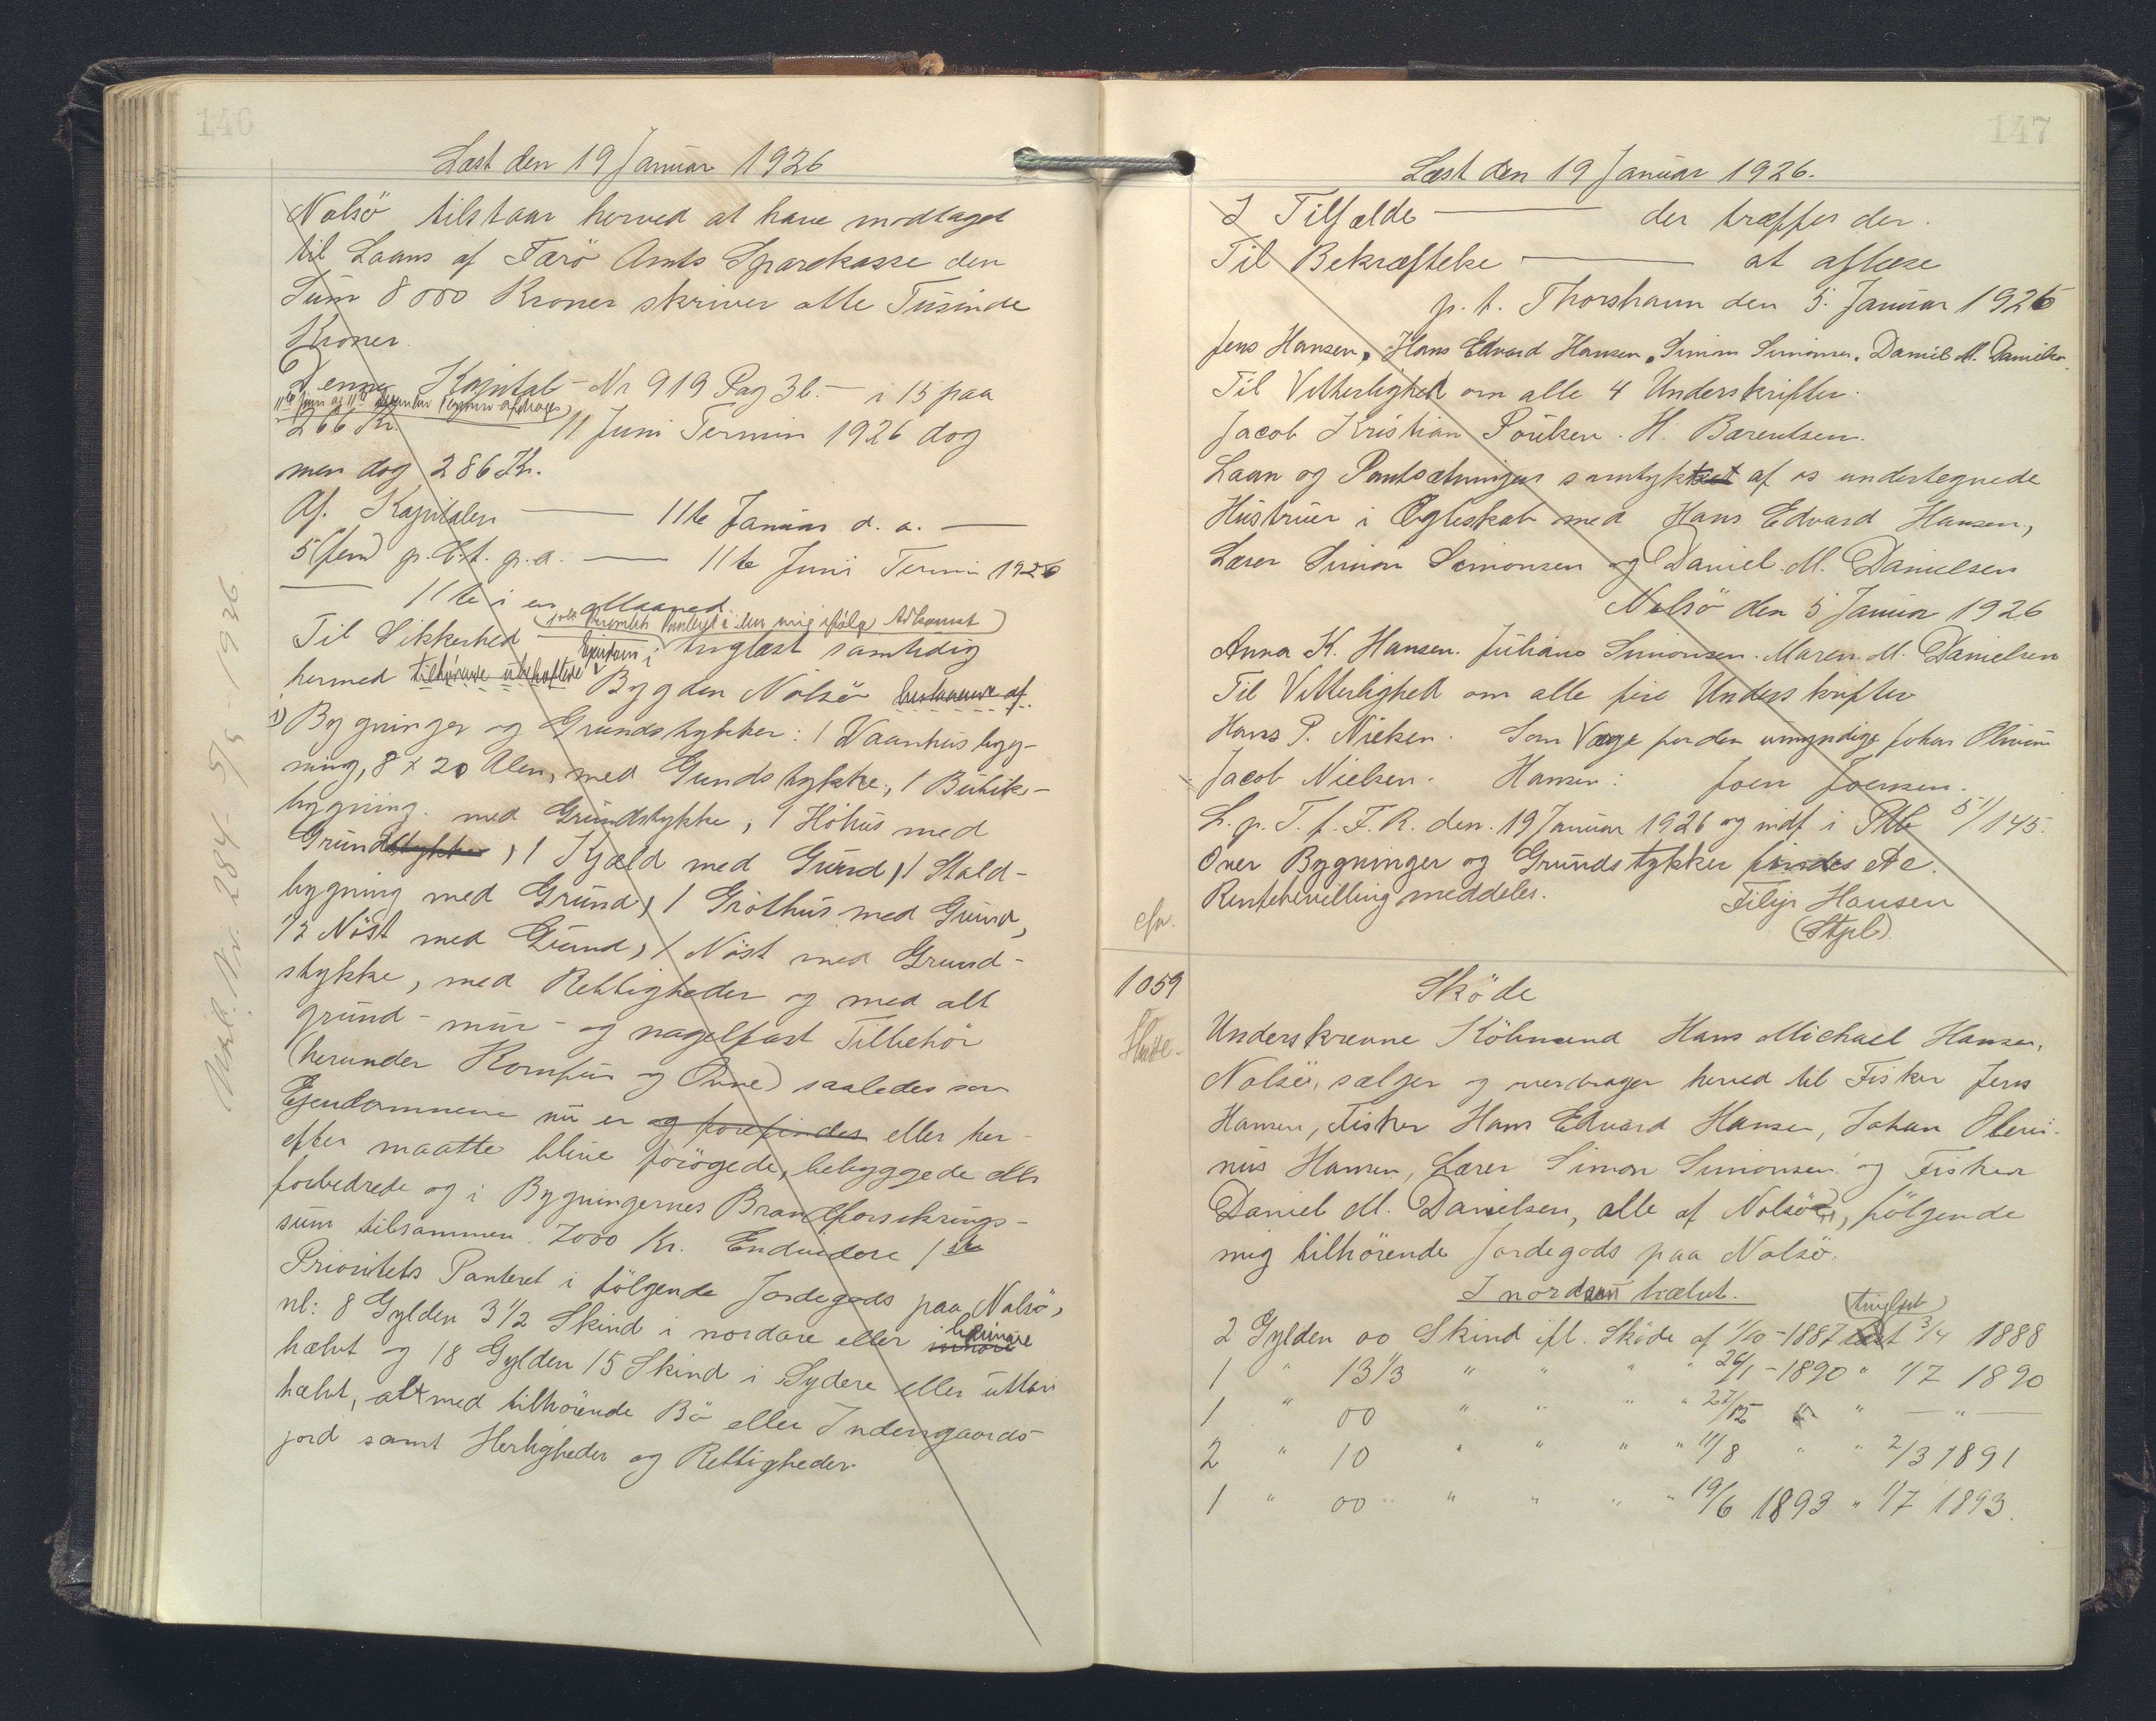 146
Læst den 19 Januar 1926
Nolsö tilstaar herved at have modtaget
til Laans af Færö Amts Sparekasse den
Sum 8000 Kroner skriver otte Tusinde
Kroner.
Denne Kapital - Nr 919 Pag 36. - i 15 paa
11te Juni og 11te December Termin afdrages
266 Kr. 11 Juni Termin 1926 dog
men dog 286 Kr.
Af Kapitalen — 11te Januar d. a. —
5 (fem) p. Ct. p.a. — 11te Juni Termin 1926
— 11te i en Maaned
Til Sikkerhed tinglæst samtidig
hermed tilhörende ubehæftede Ejendom i Bygden Nolsö bestaaende af
1) Bygninger og Grundstykker: 1 Vaanhusbyg-
ning, 8 x 20 Alen, med Gundstykke, 1 Butik-
bygning. med Grundstykke, 1 Höhus med
Grundstykke, 1 Kjæld med Grund, 1 Stald-
bygning med Grund, 1 Gróthus med Grund,
1/2 Nöst med Grund, 1 Nöst med Grund-
stykke, med Rettigheder og med alt
grund- mur- og nagelfast Tilbehör
(herunder Komfur og Ovne) saaledes som
Ejendommene nu er og forefindes eller her-
efter maatte blive forögede, bebyggede eller
forbedrede og i Bygningernes Brandforsikrings-
sum tilsammen 7000 Kr. Endvidere 1ste
Prioritets Panteret i fölgende Jordegods paa Nolsö,
nl: 8 Gylden 3 1/2 Skind i nordare eller
hælvt og 18 Gylden 15 Skind i Sydere eller uttari
hælvt, alt med tilhörende Bö eller Indengaards-
jord samt Herligheder og Rettigheder.
Nr. 284- 5/5 - 1936.
147
Læst den 19 Januar 1926.
I Tilfælde — der træffes der.
Til Bekræftelse — at aflæse
p. t. Thorshavn den 5. Januar 1926
Jens Hansen, Hans Edvard Hansen, Simon Simonsen. Daniel M. Danielsen.
Til Vitterlighed om alle 4 Underskrifter.
Jacob Kristian Poulsen. H. Barentsen.
Laan og Pantsætningen samtykket af os undertegnede
Hustruer i Ægteskab med Hans Edvard Hansen,
Lærer Simon Simonsen og Daniel M. Danielsen
Nolsö den 5 Januar 1926
Anna K. Hansen. Juliane Simonsen. Maren M. Danielsen
Til Vitterlighed om alle fire Underskrifter
Hans P. Nielsen. Som Værge for den umyndige Johan
Jacob Nielsen. Hansen: Joen Joensen.
L. p. T. f. F. R. den. 19 Januar 1926 og indf i Ptb 51/145.
Over Bygninger og Grundstykker findes Ac.
Rentebevilling meddeles. Filip Hansen
(Stpl)
cfr.
1059
Sköde
Underskrevne Köbmand Hans Michael Hansen,
Nolsö, sælger og overdrager herved til Fisker Jens
Hansen, Fisker Hans Edvard Hansen, Johan Olivi-
nus Hansen, Lærer Simon Simonsen og Fisker
Daniel M. Danielsen, alle af Nolsö, fölgende
mig tilhörende Jordegods paa Nolsö.
I nordari hælvt.
2 Gylden 00 Skind ifl. Sköde af 1/10 - 1887 læst (tinglæst) 3/4 1888
1 " 13 1/3 " " " " 26/1 - 1890 " 1/7 1890
1 " 00 " " " " 27/12 " " — " —
2 " 10 " " " " 11/8 " " 2/3 1891
1 " 00 " " " " 19/6 1893 " 1/7 1893.